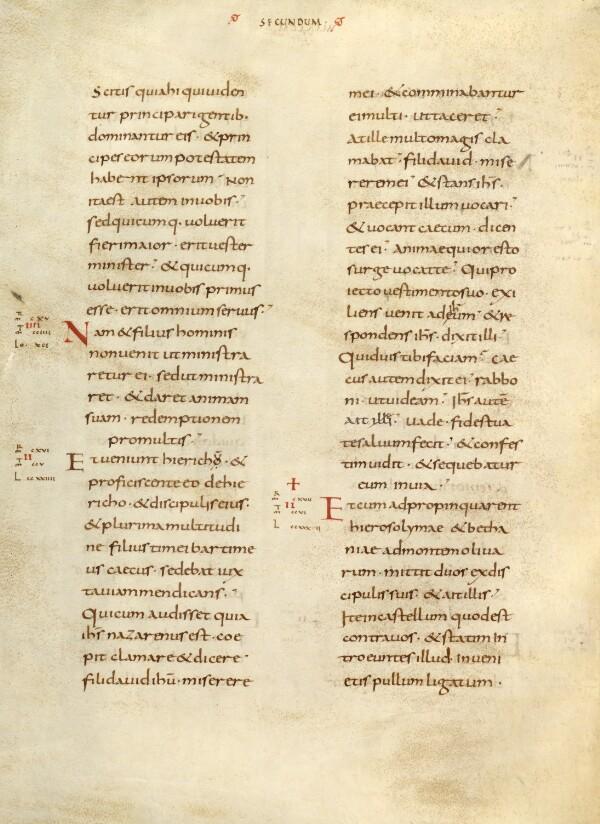 SECUNDUM
Scitis quia hi qui viden
tur principari gentib·
dominantur eis · & prin
cipes eorum potestatem
habent ipsorum · Non
ita est autem in vobis ·
sed quicumq· voluerit
fieri maior · erit vester
minister · & quicumq·
voluerit in vobis primus
esse · erit omnium servus ·
Nam & filius hominis
non venit ut ministra
retur ei · sed ut ministra
ret · & daret animam
suam · redemptionem
pro multis ·
Et veniunt hiericho · &
proficiscente eo de hie
richo · & discipulis eius ·
& plurima multitudi
ne filius timei bartime
us caecus · sedebat iux
ta viam mendicans ·
Qui cum audisset quia
ihs nazarenus est · coe
pit clamare & dicere ·
fili david ihu · miserere
mei · & comminabantur
ei multi · ut taceret ·
at ille multo magis cla
mabat · fili david · mise
rere mei · & stans ihs ·
praecepit illum vocari ·
& vocant caecum · dicen
tes ei · animaequior esto
surge vocat te · Qui pro
iecto vestimento suo · exi
liens venit ad eum · & re
spondens ihs · dixit illi ·
Quid vis tibi faciam · cae
cus autem dixit ei · rabbo
ni · ut videam · Ihs autē
ait illi · vade · fides tua
te salvum fecit · & confes
tim vidit · & sequebatur
eum in via ·
Et cum adpropinquarent
hierosolymae & betha
niae ad montem oliva
rum · mittit duos ex dis
cipulis suis · & ait illis ·
Ite in castellum quod est
contra vos · & statim in
troeuntes illud · inveni
etis pullum ligatum ·